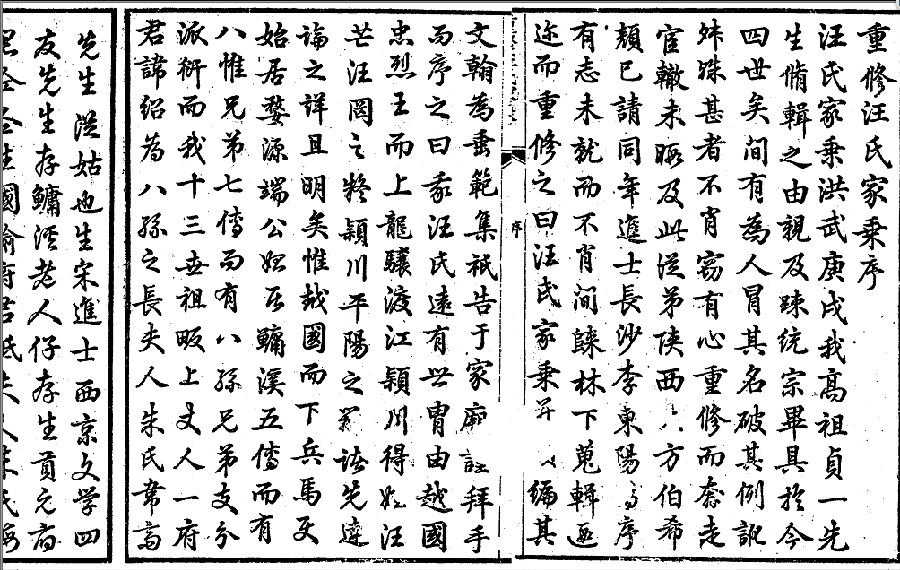 重修汪氏家乗序
汪氏家乗洪武庚戌我高祖貞一先
生脩輯之由親及踈統宗畢具於今
四世矣間有為人冒其名破其例訛
舛殊甚者不肖窃有心重修而奔走
宦轍未暇及此從弟陕西 方伯希
顏已請同年進士長沙李東陽 序
有志未就而不肖間歸林下蒐輯
迩而重修之曰汪氏家乗 編其
文翰為垂範集祇告于家廟 拜手
而序之曰我汪氏遠有世胄由越國
忠烈王而上龍驤渡江穎川得姓汪
芒汪罔之辨穎川平陽之 諸先達
論之详且明矣惟越國而下兵馬
始居婺源端公始居鱅溪五傳而有
八惟兄弟七傳而有八孫兄弟支分
派衍而我十三世祖畈上丈人一府
君諱紹為八孫之長夫人朱氏韋斎
先生從姑也生宋進士西京文学四
友先生存鱅溪老人仔存生貢元